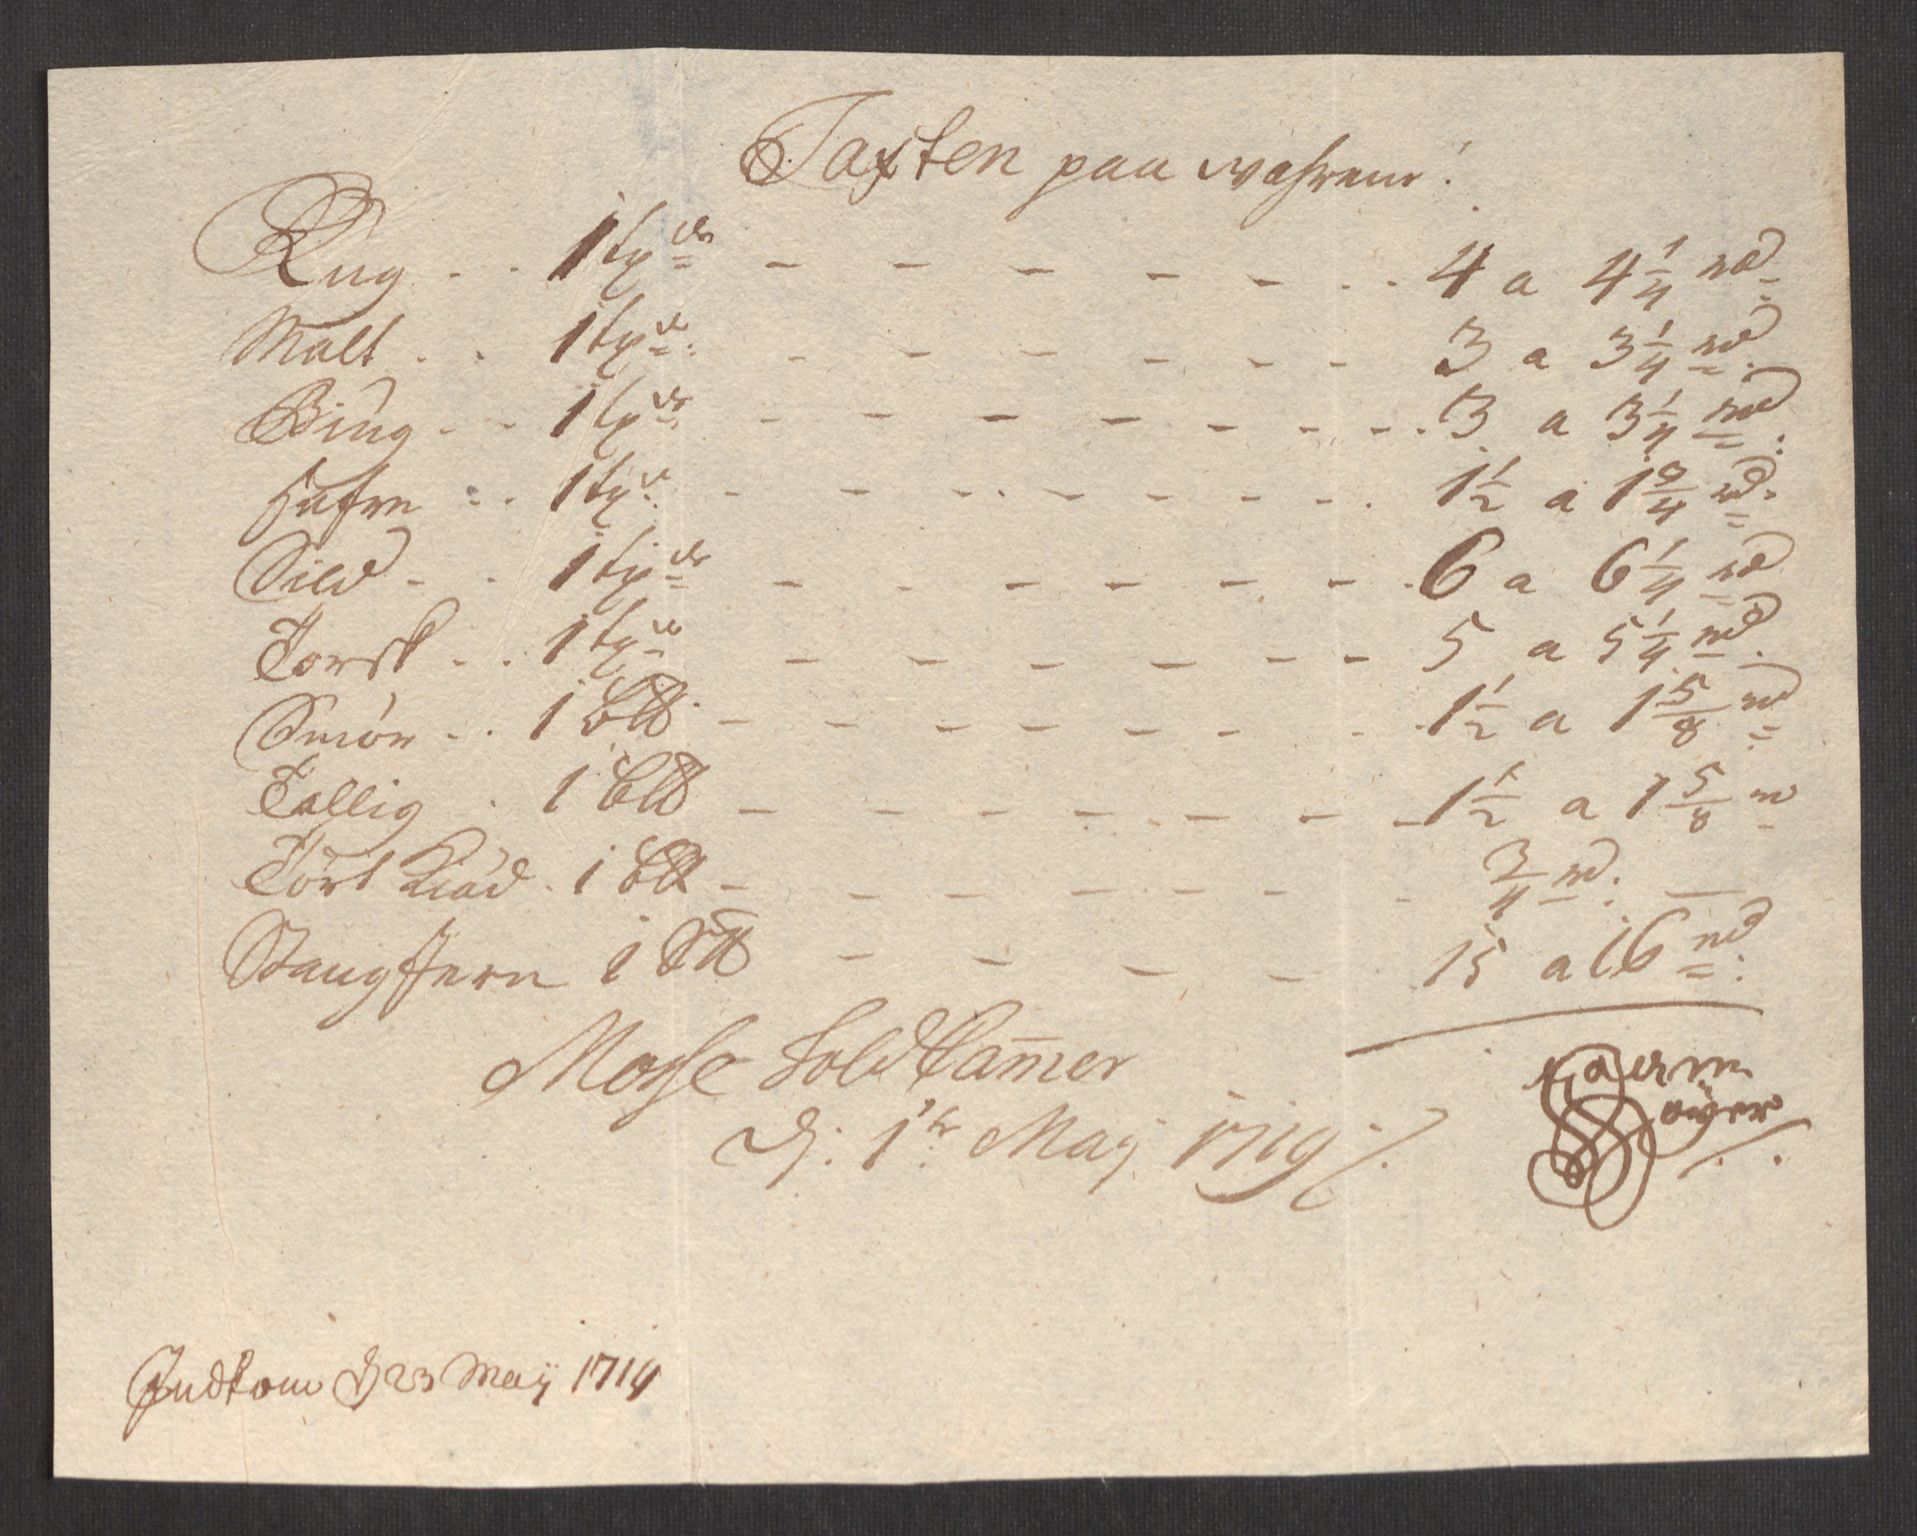 Taxten paa wahrene!
Rug .. 1 tyn̄de - - - - - .. 4 a 4 1/4 rd:
Malt .. 1 tyn̄de: - - - - - 3 a 3 1/4 rd:
Biug .. 1 tyn̄de - - - - - . 3 a 3 1/4 rd:
Hafre .. 1 tyn̄de: - - - - - . 1 1/2 a 1 3/4 rd:
Sild .. 1 tyn̄de - - - - - . 6 a 6 1/4 rd
Torsk .. 1 tyn̄de - - - - - 5 a 5 1/4 rd.
Smör .. 1 B℔ - - - - - . 1 1/2 a 1 5/8 rd:
Tallig . 1 B℔ - - - - - 1 1/2 a 1 5/8 rd
Tört Kiöd . 1 B℔ - - - - - . 3/4 rd: —
Stangjern 1 S℔ - - - - . 15 a 16 rd:
Mosse Told Cam̄er
d: 1te Maÿ 1719 ./.
Indkom d 23 Maÿ 1714